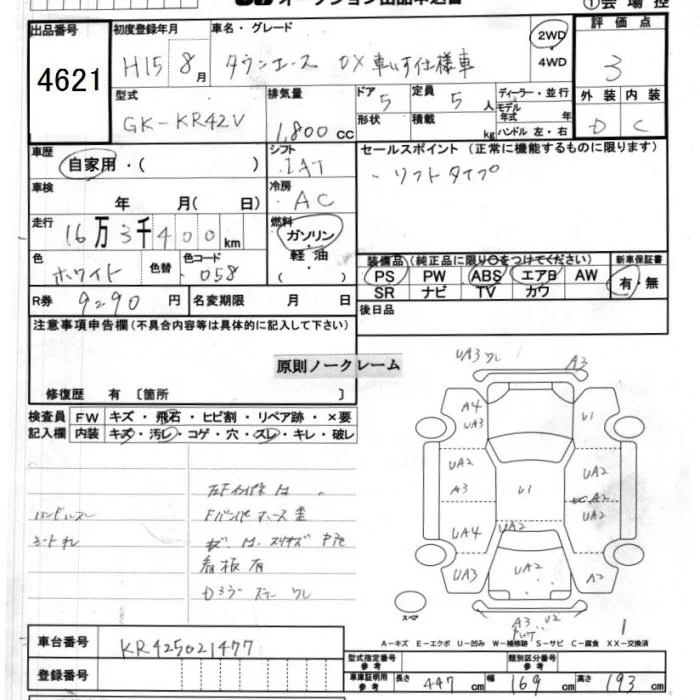 オークション出品申込書
①会場控
出品番号 4621
初度登録年月 H15 8月
車名・グレード タウンエース DX 車いす仕様車
2WD・4WD
評価点 3
型式 GK-KR42V
排気量 1,800 cc
ドア 5 形状
定員 5 人 積載 kg
ディーラー・並行 モデル年式 年 ハンドル 左・右
外装 内装 D C
車歴 自家用・( )
シフト IAT
セールスポイント (正常に機能するものに限ります)
・リフトタイプ
車検 年 月( 日)
冷房 AC
走行 16万3千400km
燃料 ガソリン・軽油 ( ・ )
色 ホワイト 色替 色コード 058
装備品 (純正品に限り○をつけてください)
新車保証書 有・無
PS PW ABS エアB AW
SR ナビ TV カワ
R券 9290 円 名変期限 月 日
後日品
注意事項申告欄 (不具合内容等は具体的に記入して下さい)
原則ノークレーム
修復歴 有 〔箇所 〕
検査員 記入欄
FW キズ・飛石・ヒビ割・リペア跡・×要
内装 キズ・汚レ・コゲ・穴・スレ・キレ・破レ
ハンドルスレ
シートキレ
看板有
UA3 ワレ
A3
A4
UA3
U1
UA2
A3
U1
UA2
A2
UA2
UA4
UA2
UA3
UA2
A2
スペア
A3 U2
A-キズ E-エクボ U-凹み W-補修跡 S-サビ C-腐食 XX-交換済
車台番号 KR425021477
登録番号
型式指定番号 参考
類別区分番号 参考
車庫証明用 参考 長さ 447 cm 幅 169 cm 高さ 193 cm